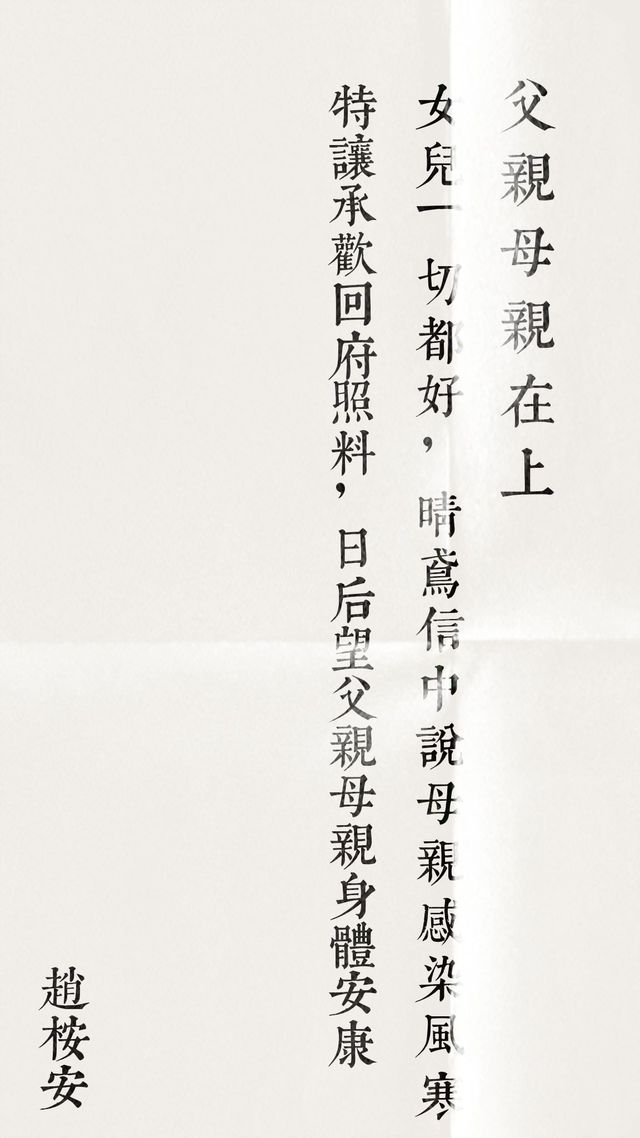 父親母親在上
女兒一切都好，晴鳶信中說母親感染風寒
特讓承歡回府照料，日后望父親母親身體安康
趙桉安